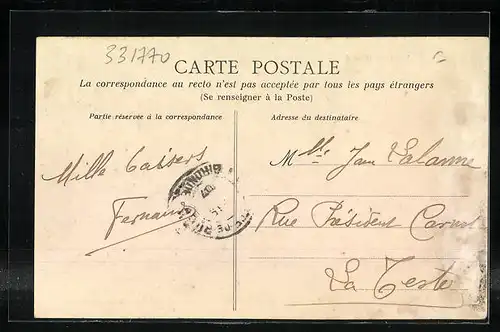 331770
CARTE POSTALE
La correspondance au recto n'est pas acceptée par tous les pays étrangers
(Se renseigner à la Poste)
Partie réservée à la correspondance
Adresse du destinataire
Mille baisers
Fernand
Mlle Jane Lalanne
Rue Président Carnot
La Teste
GIRONDE